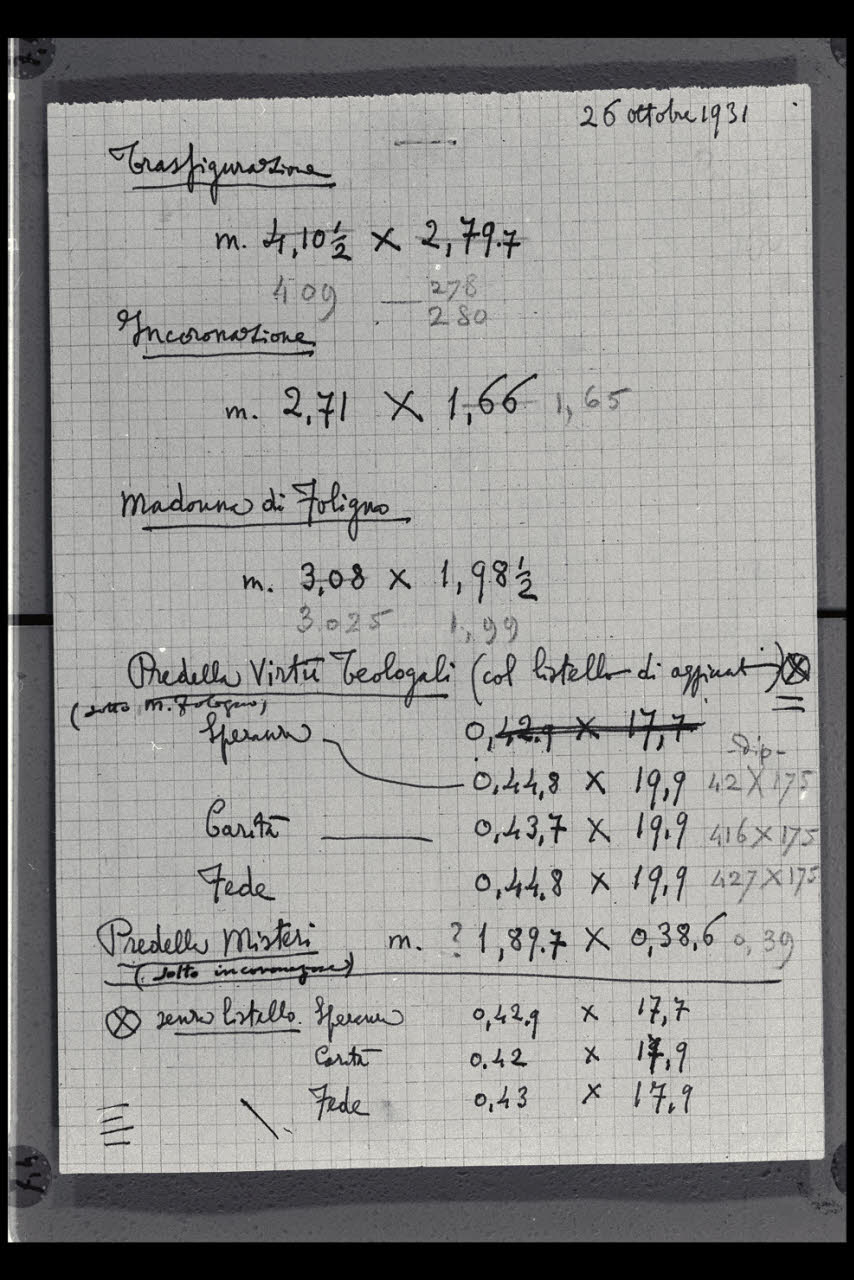 26 ottobre 1931
Trasfigurazione
m. 4,10½ × 2,79.7
409 — 278
280
Incoronazione
m. 2,71 × 1,66 1,65
Madonna di Foligno
m. 3,08 × 1,98½
3.025 1,99
Predella Virtù Teologali (col listello di )⊗
(sotto M. Foligno)
Speranza 0,42.9 × 17,7
-dip-
0,44,8 × 19,9 42×175
Carità — 0,43,7 × 19.9 416×175
Fede 0,44.8 × 19,9 427×175
Predella Misteri m. ? 1,89.7 × 0,38,6 0,39
(sotto incoronazione)
⊗ senza listello. Speranza 0,42,9 × 17,7
Carità 0.42 × 17,9
Fede 0,43 × 17,9